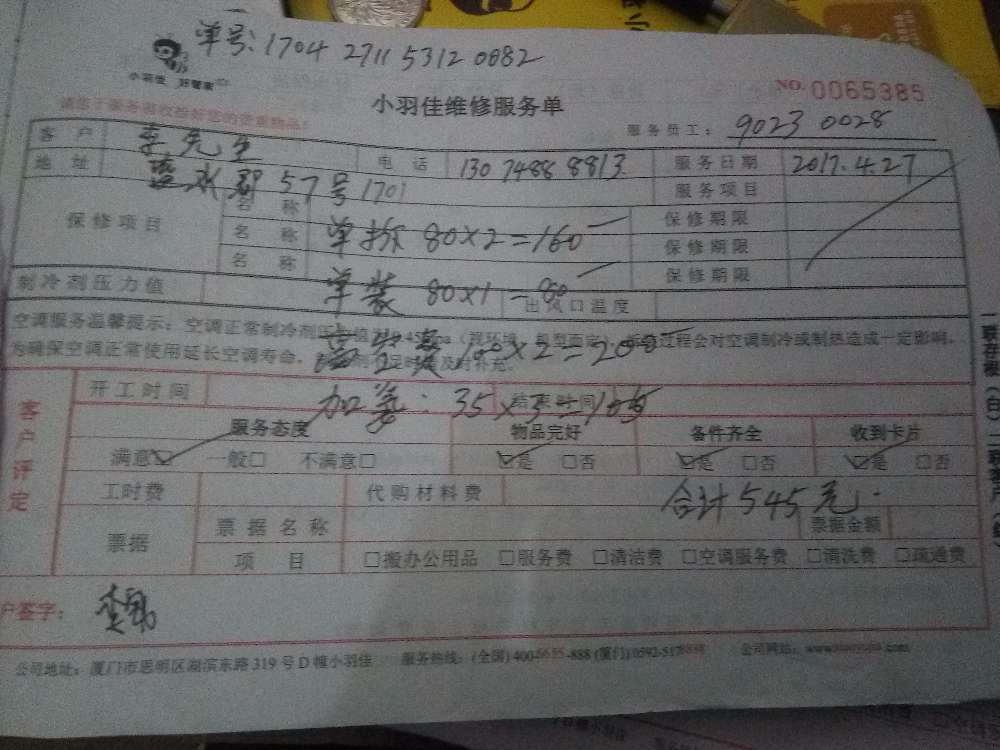 单号:1704 2711 5312 0082
小羽佳 好管家
NO. 0065385
小羽佳维修服务单
服务员工: 90230028
客户 李先生 电话 130 7488 8813 服务日期 2017.4.27
地址 水郡57号1701 服务项目
保修项目 名称 保修期限
名称 单拆 80×2=160 保修期限
名称 保修期限
单装 80×1=80
制冷剂压力值 出风口温度
空调服务温馨提示:空调正常制冷剂 过程会对空调制冷或制热造成一定影响,
为确保空调正常使用延长空调寿命, 及时补充。
100×2=200
开工时间 结束时间
加氨:35×3=105
客户评定
服务态度 物品完好 备件齐全 收到卡片
满意☑ 一般□ 不满意□ ☑是 □否 ☑是 □否 ☑是 □否
工时费 代购材料费 合计545元.
票据 票据名称 票据金额
项目 □搬办公用品 □服务费 □清洁费 □空调服务费 □清洗费 □疏通费
户签字:
公司地址:厦门市思明区湖滨东路319号D幢小羽佳 服务热线:(全国)400-6655-888(厦门)0592-517 公司网站:www. .com